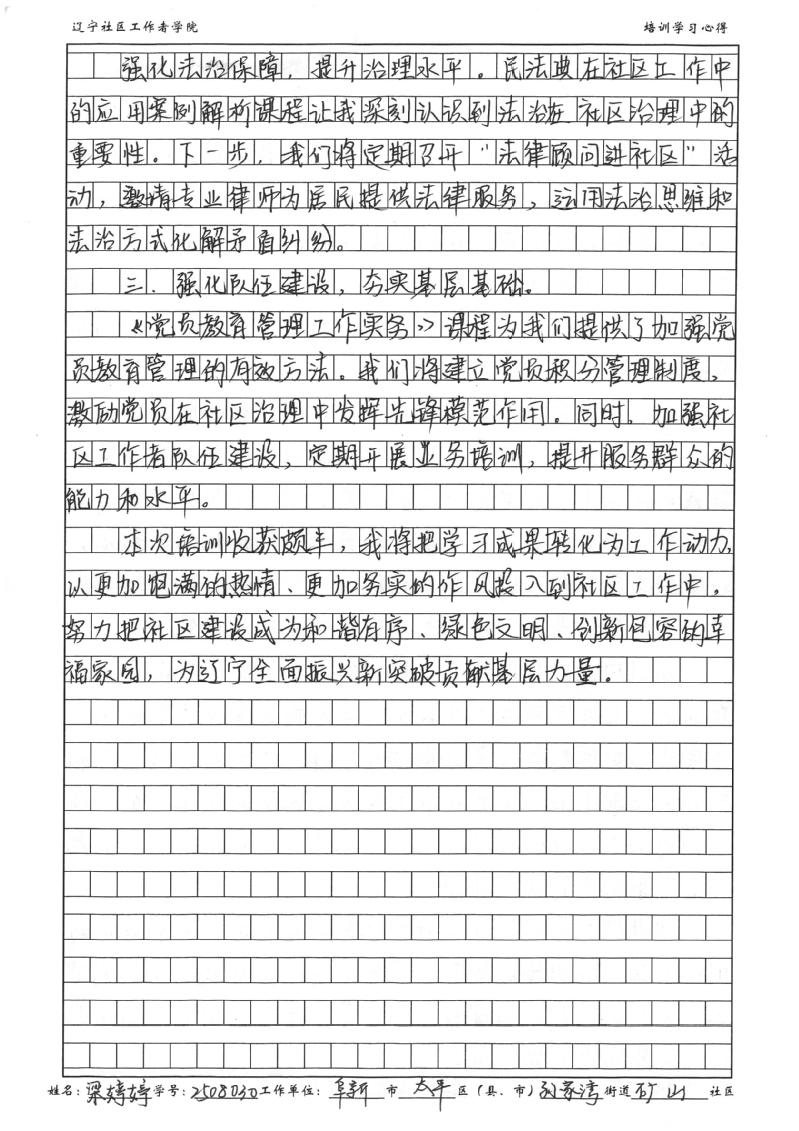 辽宁社区工作者学院 培训学习心得
强化法治保障，提升治理水平。民法典在社区工作中
的应用案例解析课程让我深刻认识到法治在社区治理中的
重要性。下一步，我们将定期召开“法律顾问进社区”活
动，邀请专业律师为居民提供法律服务，运用法治思维和
法治方式化解矛盾纠纷。
三．强化队伍建设，夯实基层基础。
《党员教育管理工作实务》课程为我们提供了加强党
员教育管理的有效方法。我们将建立党员积分管理制度，
激励党员在社区治理中发挥先锋模范作用。同时，加强社
区工作者队伍建设，定期开展业务培训，提升服务群众的
能力和水平。
本次培训收获颇丰，我将把学习成果转化为工作动力，
以更加饱满的热情、更加务实的作风投入到社区工作中，
努力把社区建设成为和谐有序、绿色文明、创新包容的幸
福家园，为辽宁全面振兴新突破贡献基层力量。
姓名：梁婷婷 学号：2508030 工作单位：阜新 市 太平 区（县、市）孙家湾 街道 矿山 社区